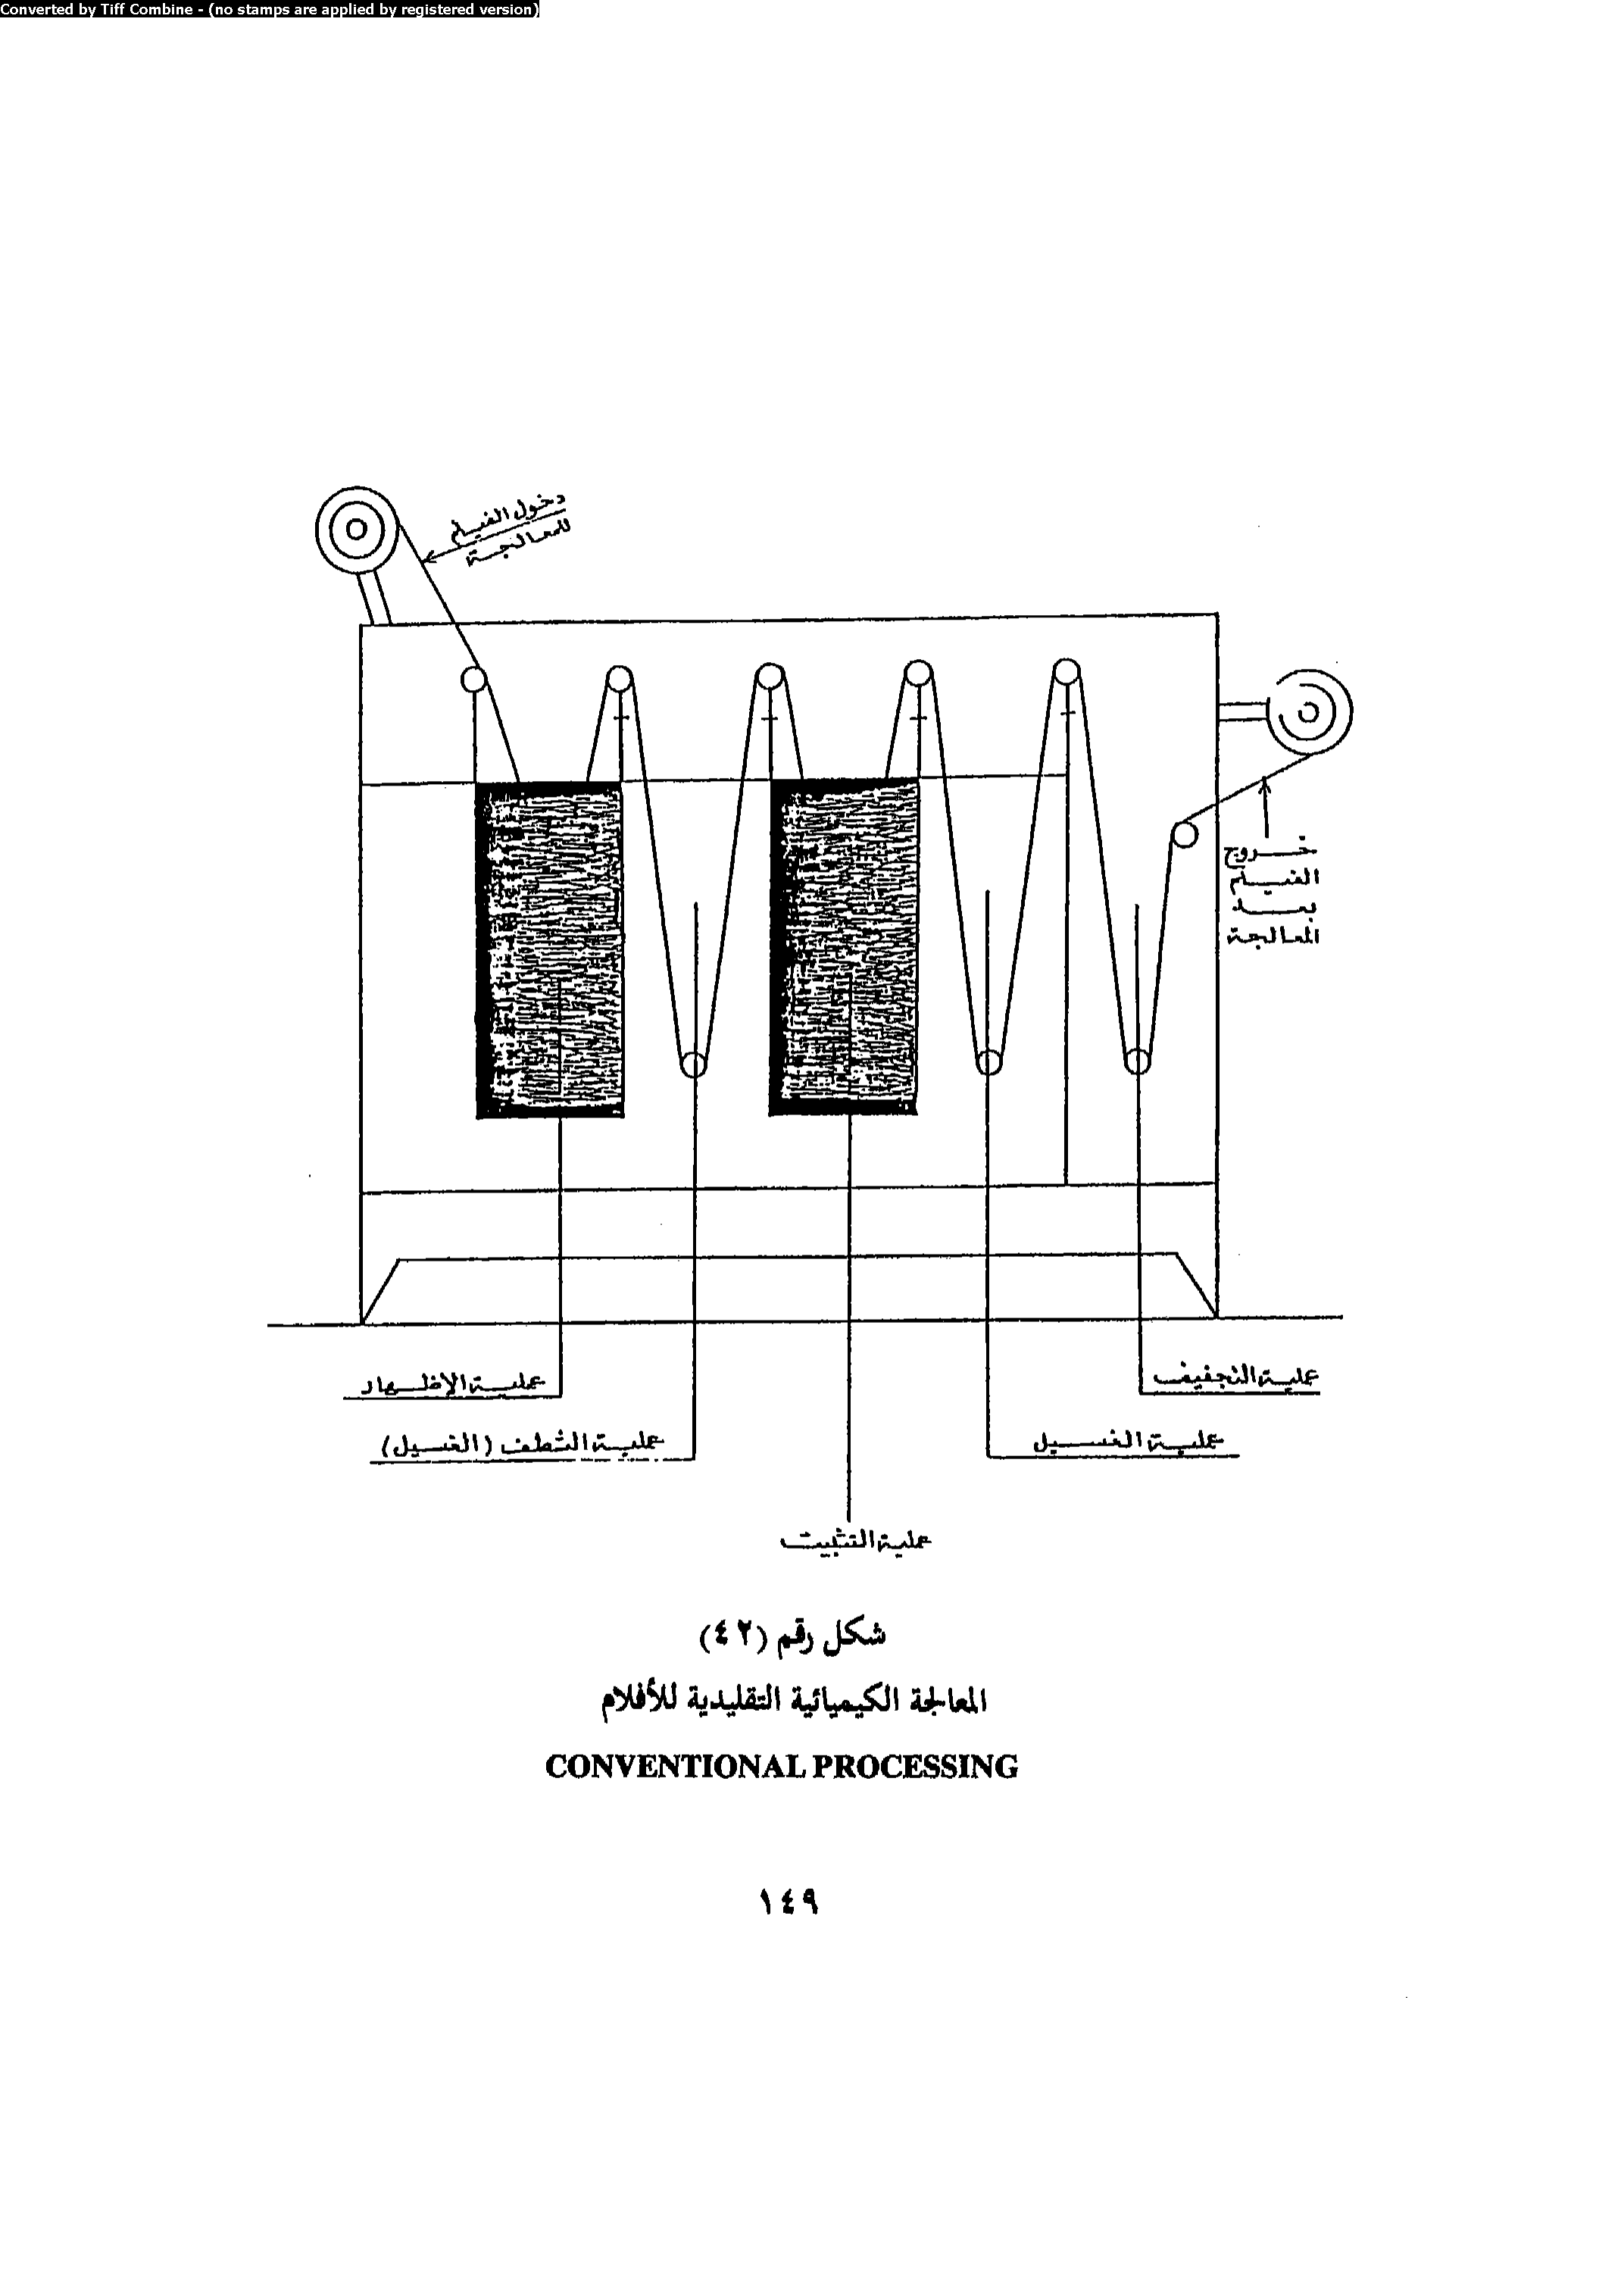 Converted by Tiff Combine - (no stamps are applied by registered version)
دخول الفيلم
للمعالجة
خروج
الفيلم
بعد
المعالجة
عملية الإظهار
عملية التجفيف
عملية الشطف (الغسيل)
عملية الغسيل
عملية التثبيت
شكل رقم (٤٢)
المعالجة الكيميائية التقليدية للأفلام
CONVENTIONAL PROCESSING
١٤٩